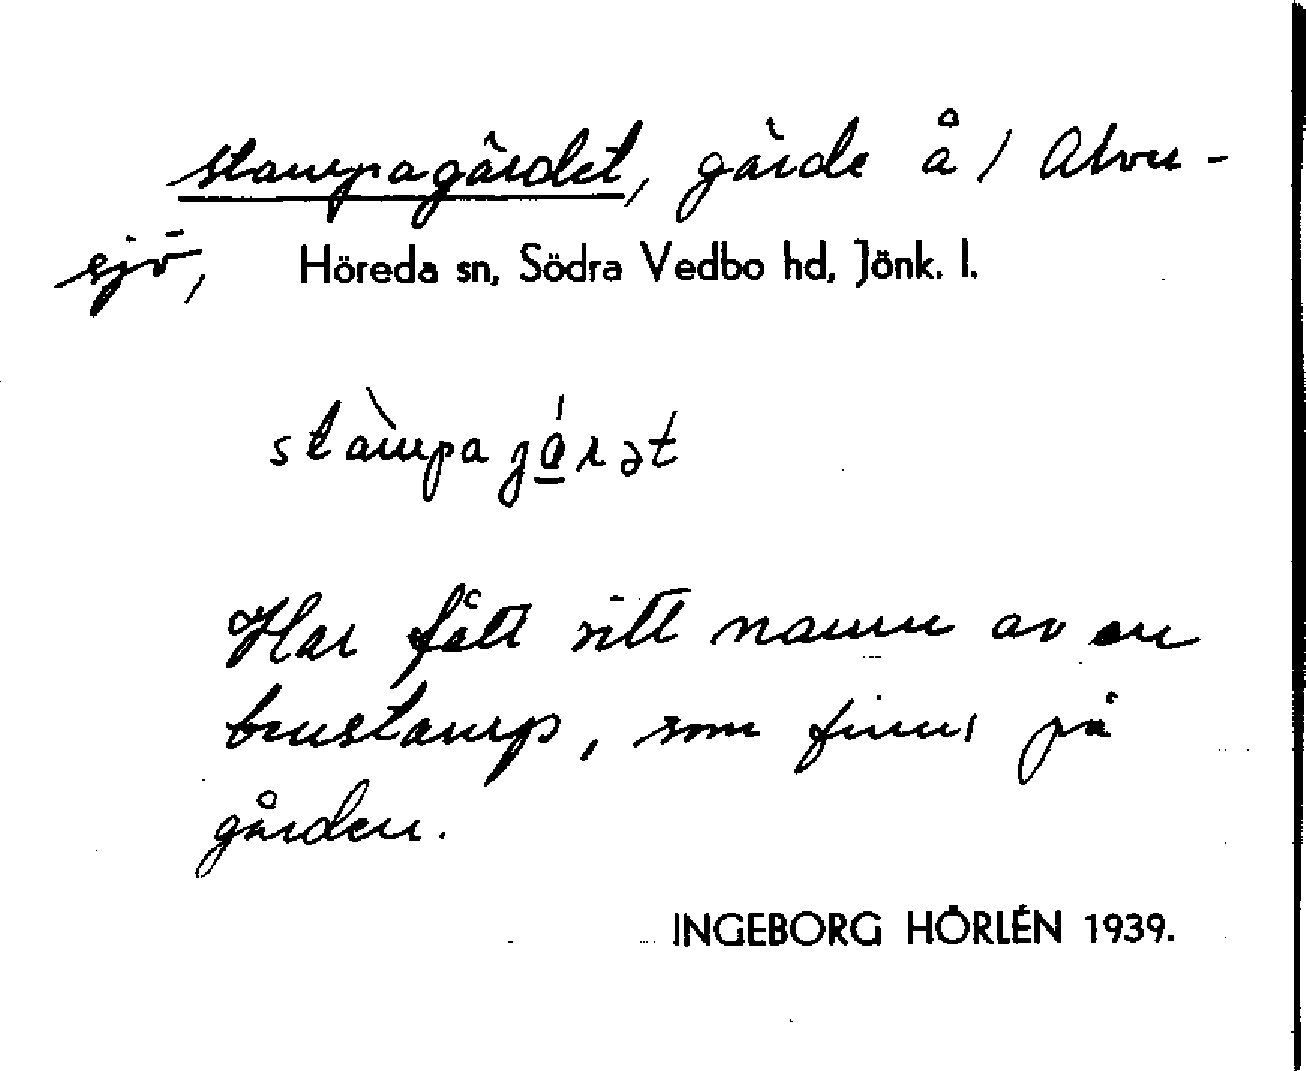 stampagärdet, gärde å 1 Alvers-
sjö, Höreda sn, Södra Vedbo hd, Jönk. l.
stàmpa
Har fått sitt namn av en
benstamp, som finns på
gården.
INGEBORG HÖRLÉN 1939.